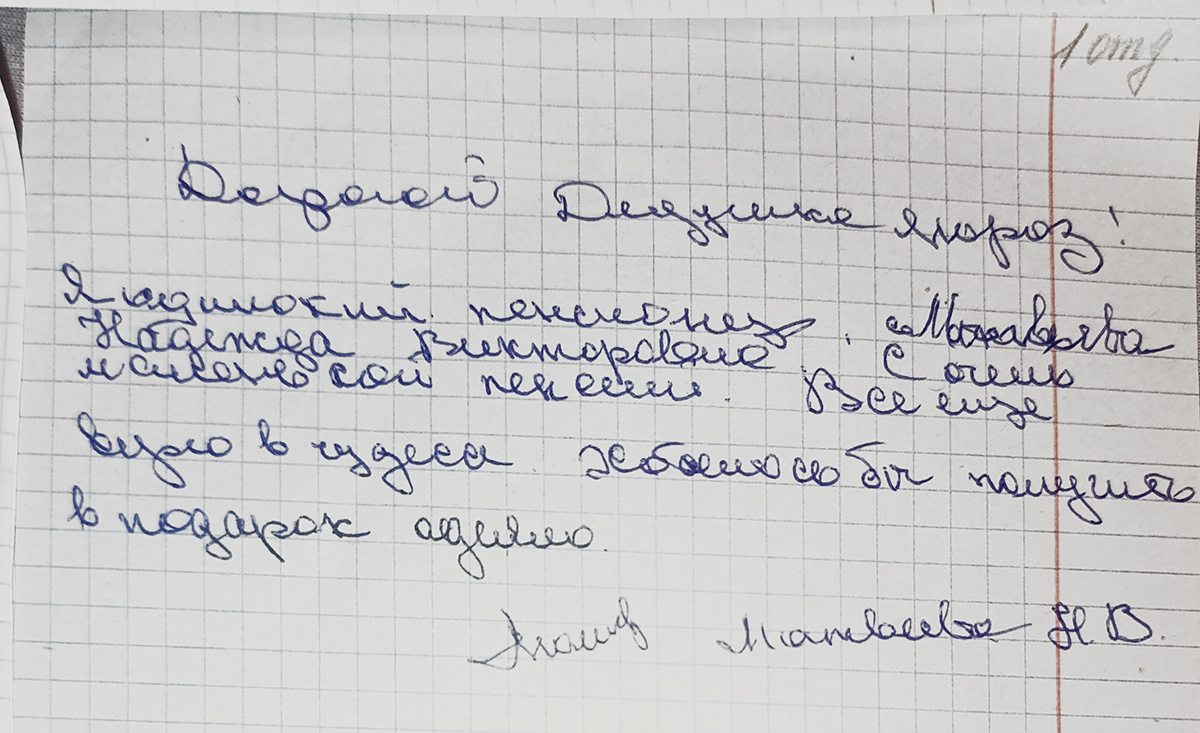 1 отд.
Дорогой Дедушка мороз!
Я одинокий пенсионер. Матвеева
Надежда Викторовна. С очень
маленькой пенсии. Все еще
верю в чудеса. Хотелось бы получить
в подарок одеяло.
Матвеева Н.В.